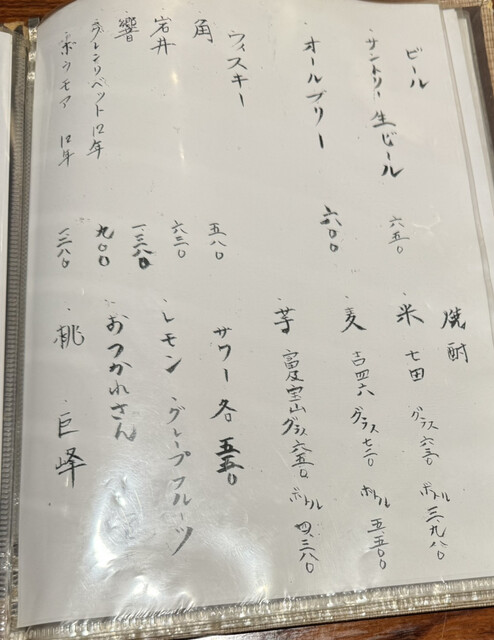 ビール
・サントリー生ビール 六五〇
・オールフリー 六〇〇
ウィスキー
・角 五八〇
・岩井 六三〇
・響 一、三八〇
・グレンリベット12年 九〇〇
・ボウモア 12年 一、三八〇
焼酎
・米 七田 グラス六三〇 ボトル三、九八〇
・麦 吉四六 グラス七二〇 ボトル五五〇〇
・芋 富乃宝山グラス六五〇 ボトル四、三八〇
サワー各五五〇
・レモン グレープフルーツ
おつかれさん
・桃 巨峰